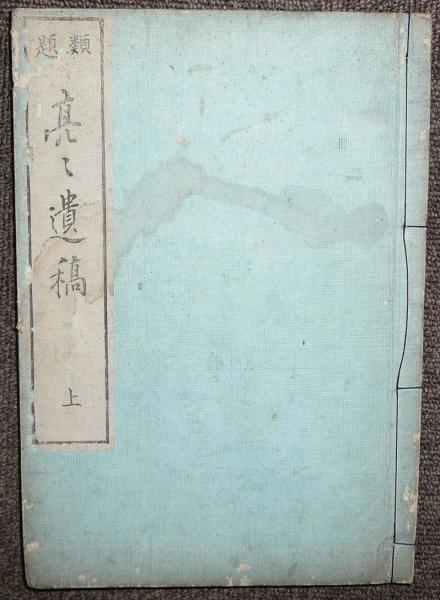 類題
亮々遺稿
上